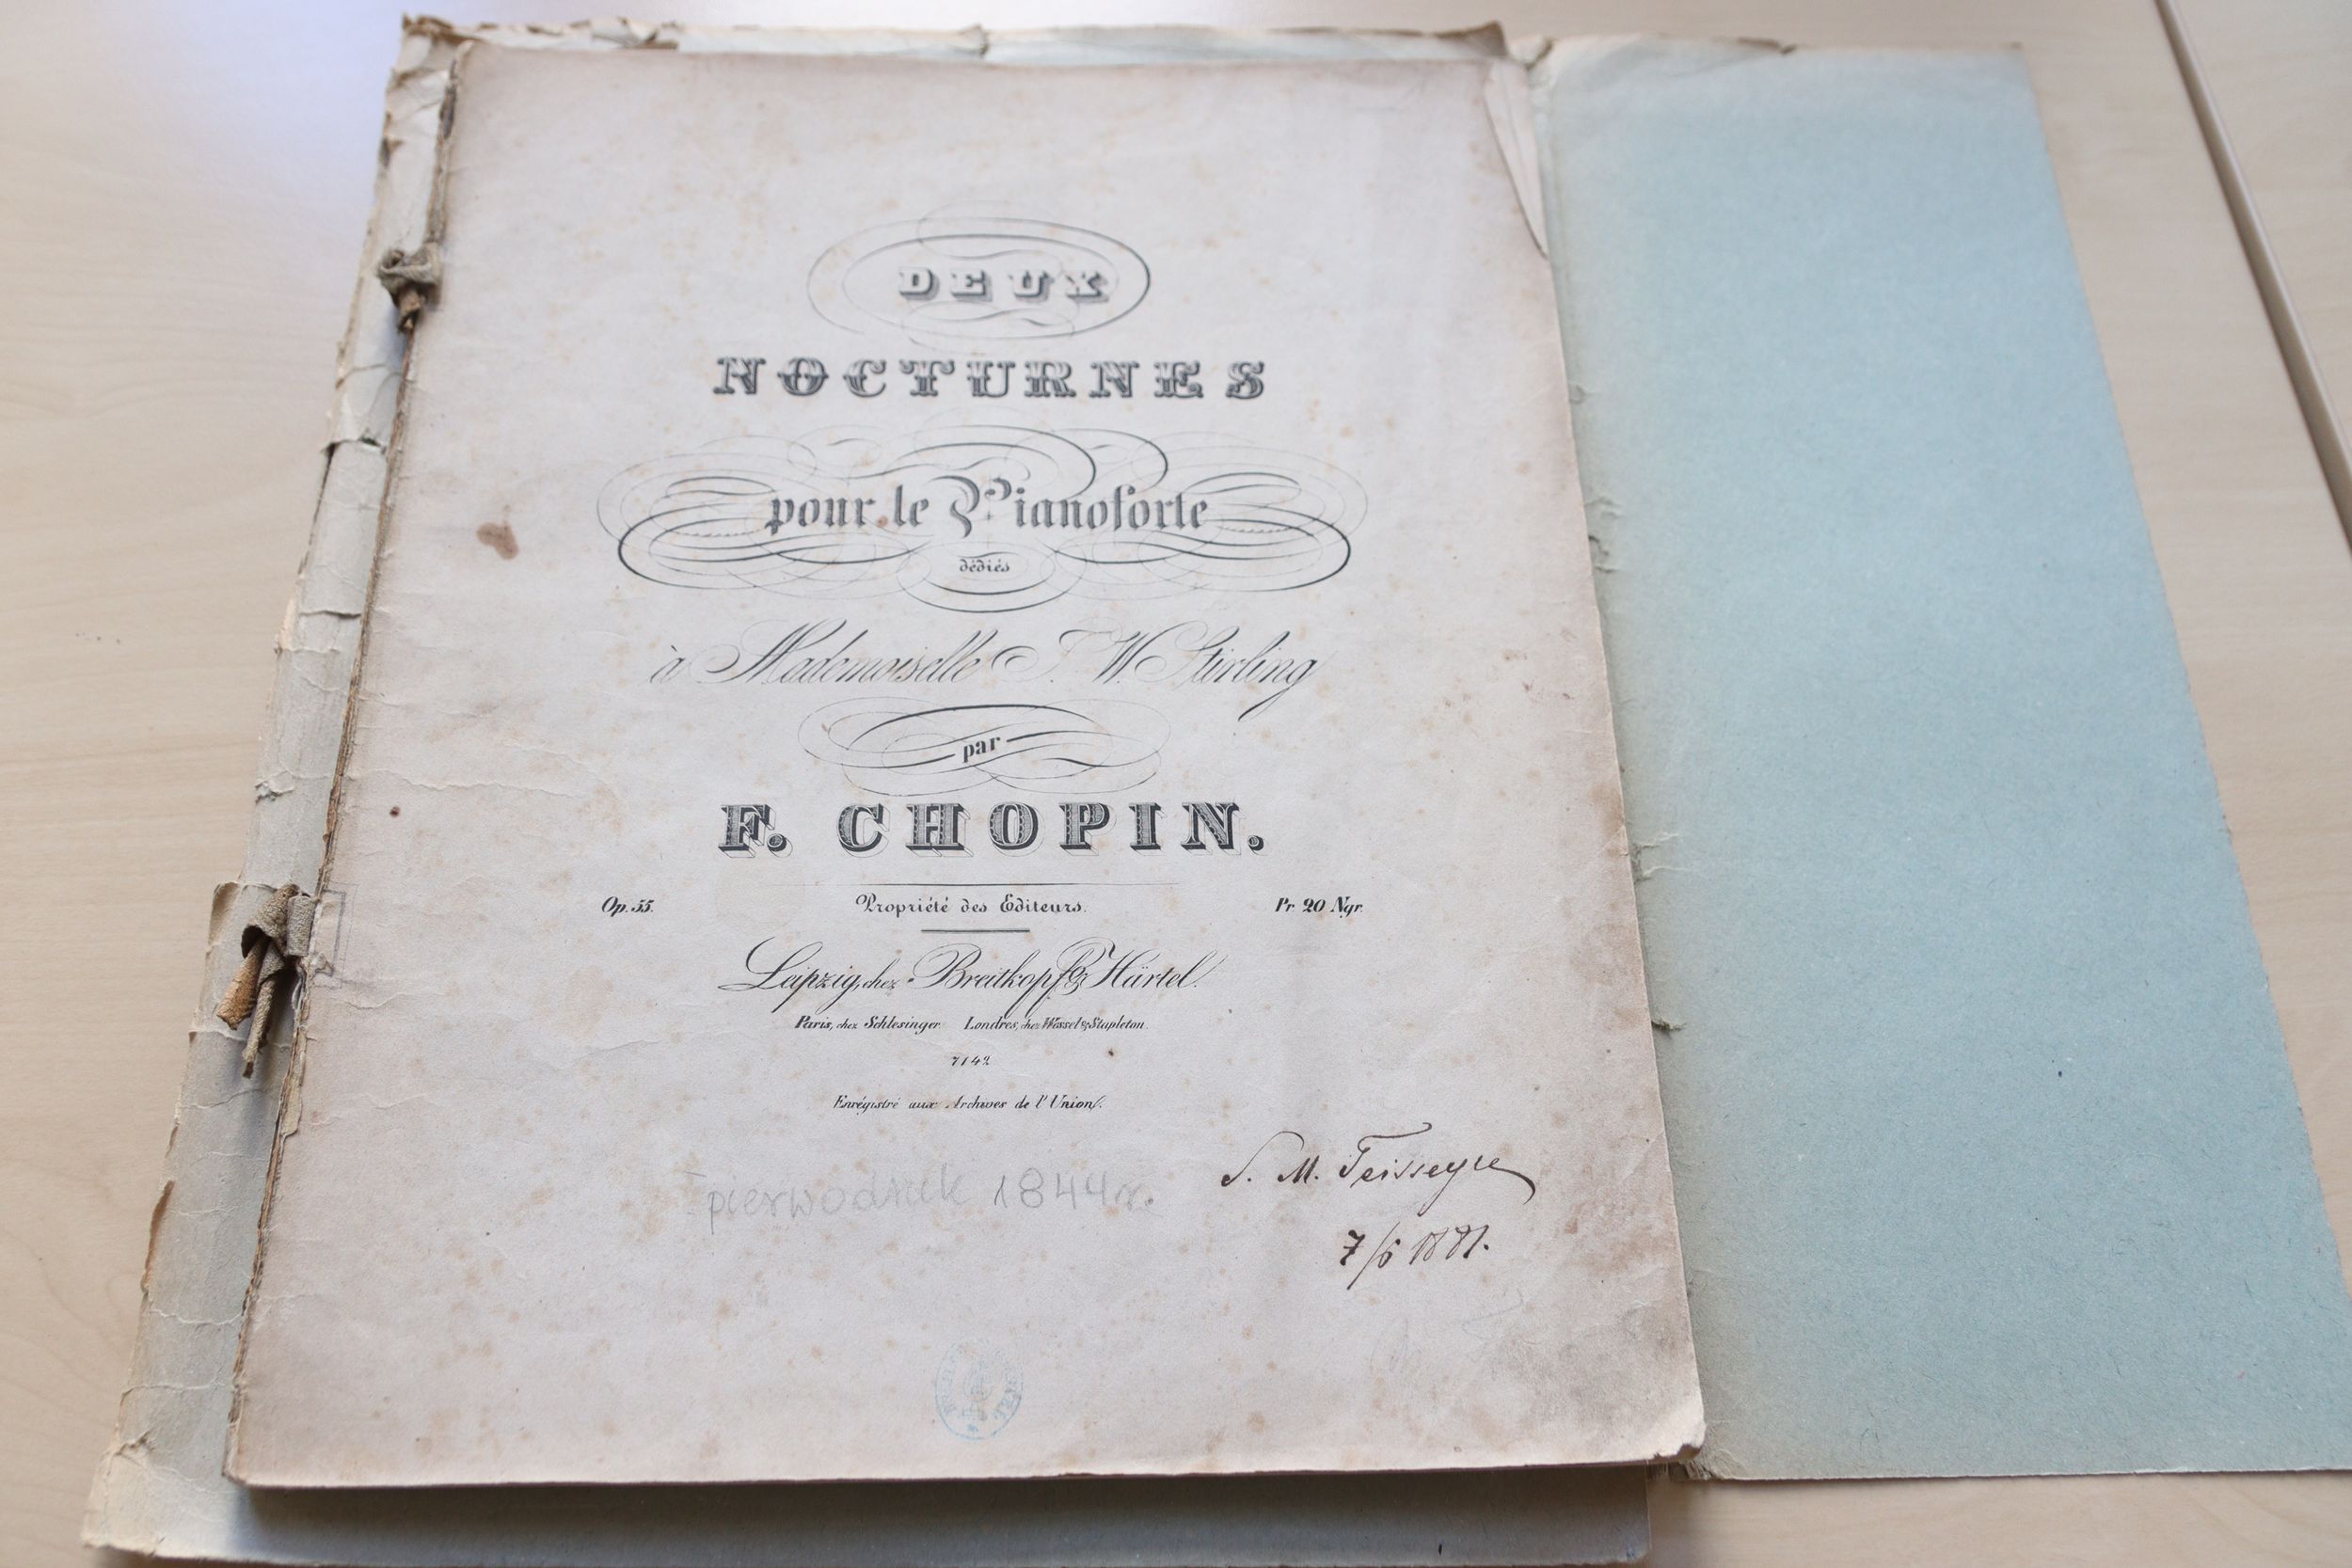 DEUX
NOCTURNES
pour le Pianoforte
dédiés
à Mademoiselle J. W. Stirling
par
F. CHOPIN.
Op. 55. Propriété des Editeurs. Pr. 20 Ngr.
Leipzig, chez Breitkopf & Härtel.
Paris, chez Schlesinger. Londres, chez Wessel & Stapleton.
7142
Enrégistré aux Archives de l'Union.
S. M. Teisseyre
pierwodruk 1844 r.
7/6 1881.